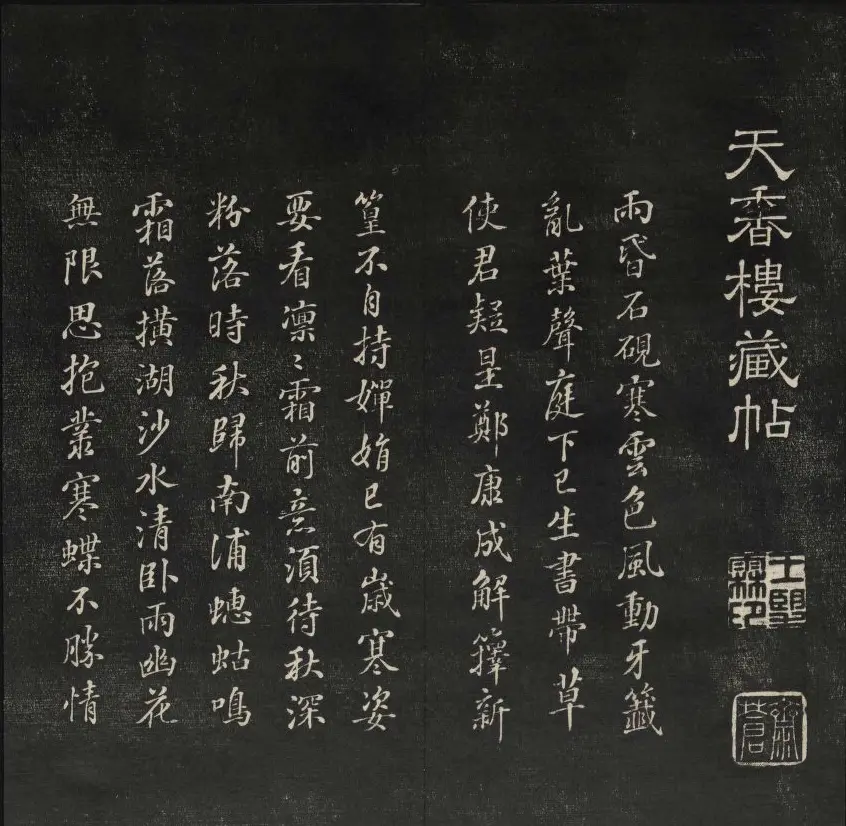 天香樓藏帖
雨昏石硯寒雲色風動牙籤
亂葉聲庭下已生書帶草
使君疑是鄭康成解籜新
篁不自持嬋娟已有歲寒姿
要看凛〻霜前意須待秋深
粉落時秋歸南浦蟪蛄鳴
霜落橫湖沙水清臥雨幽花
無限思抱叢寒蝶不勝情